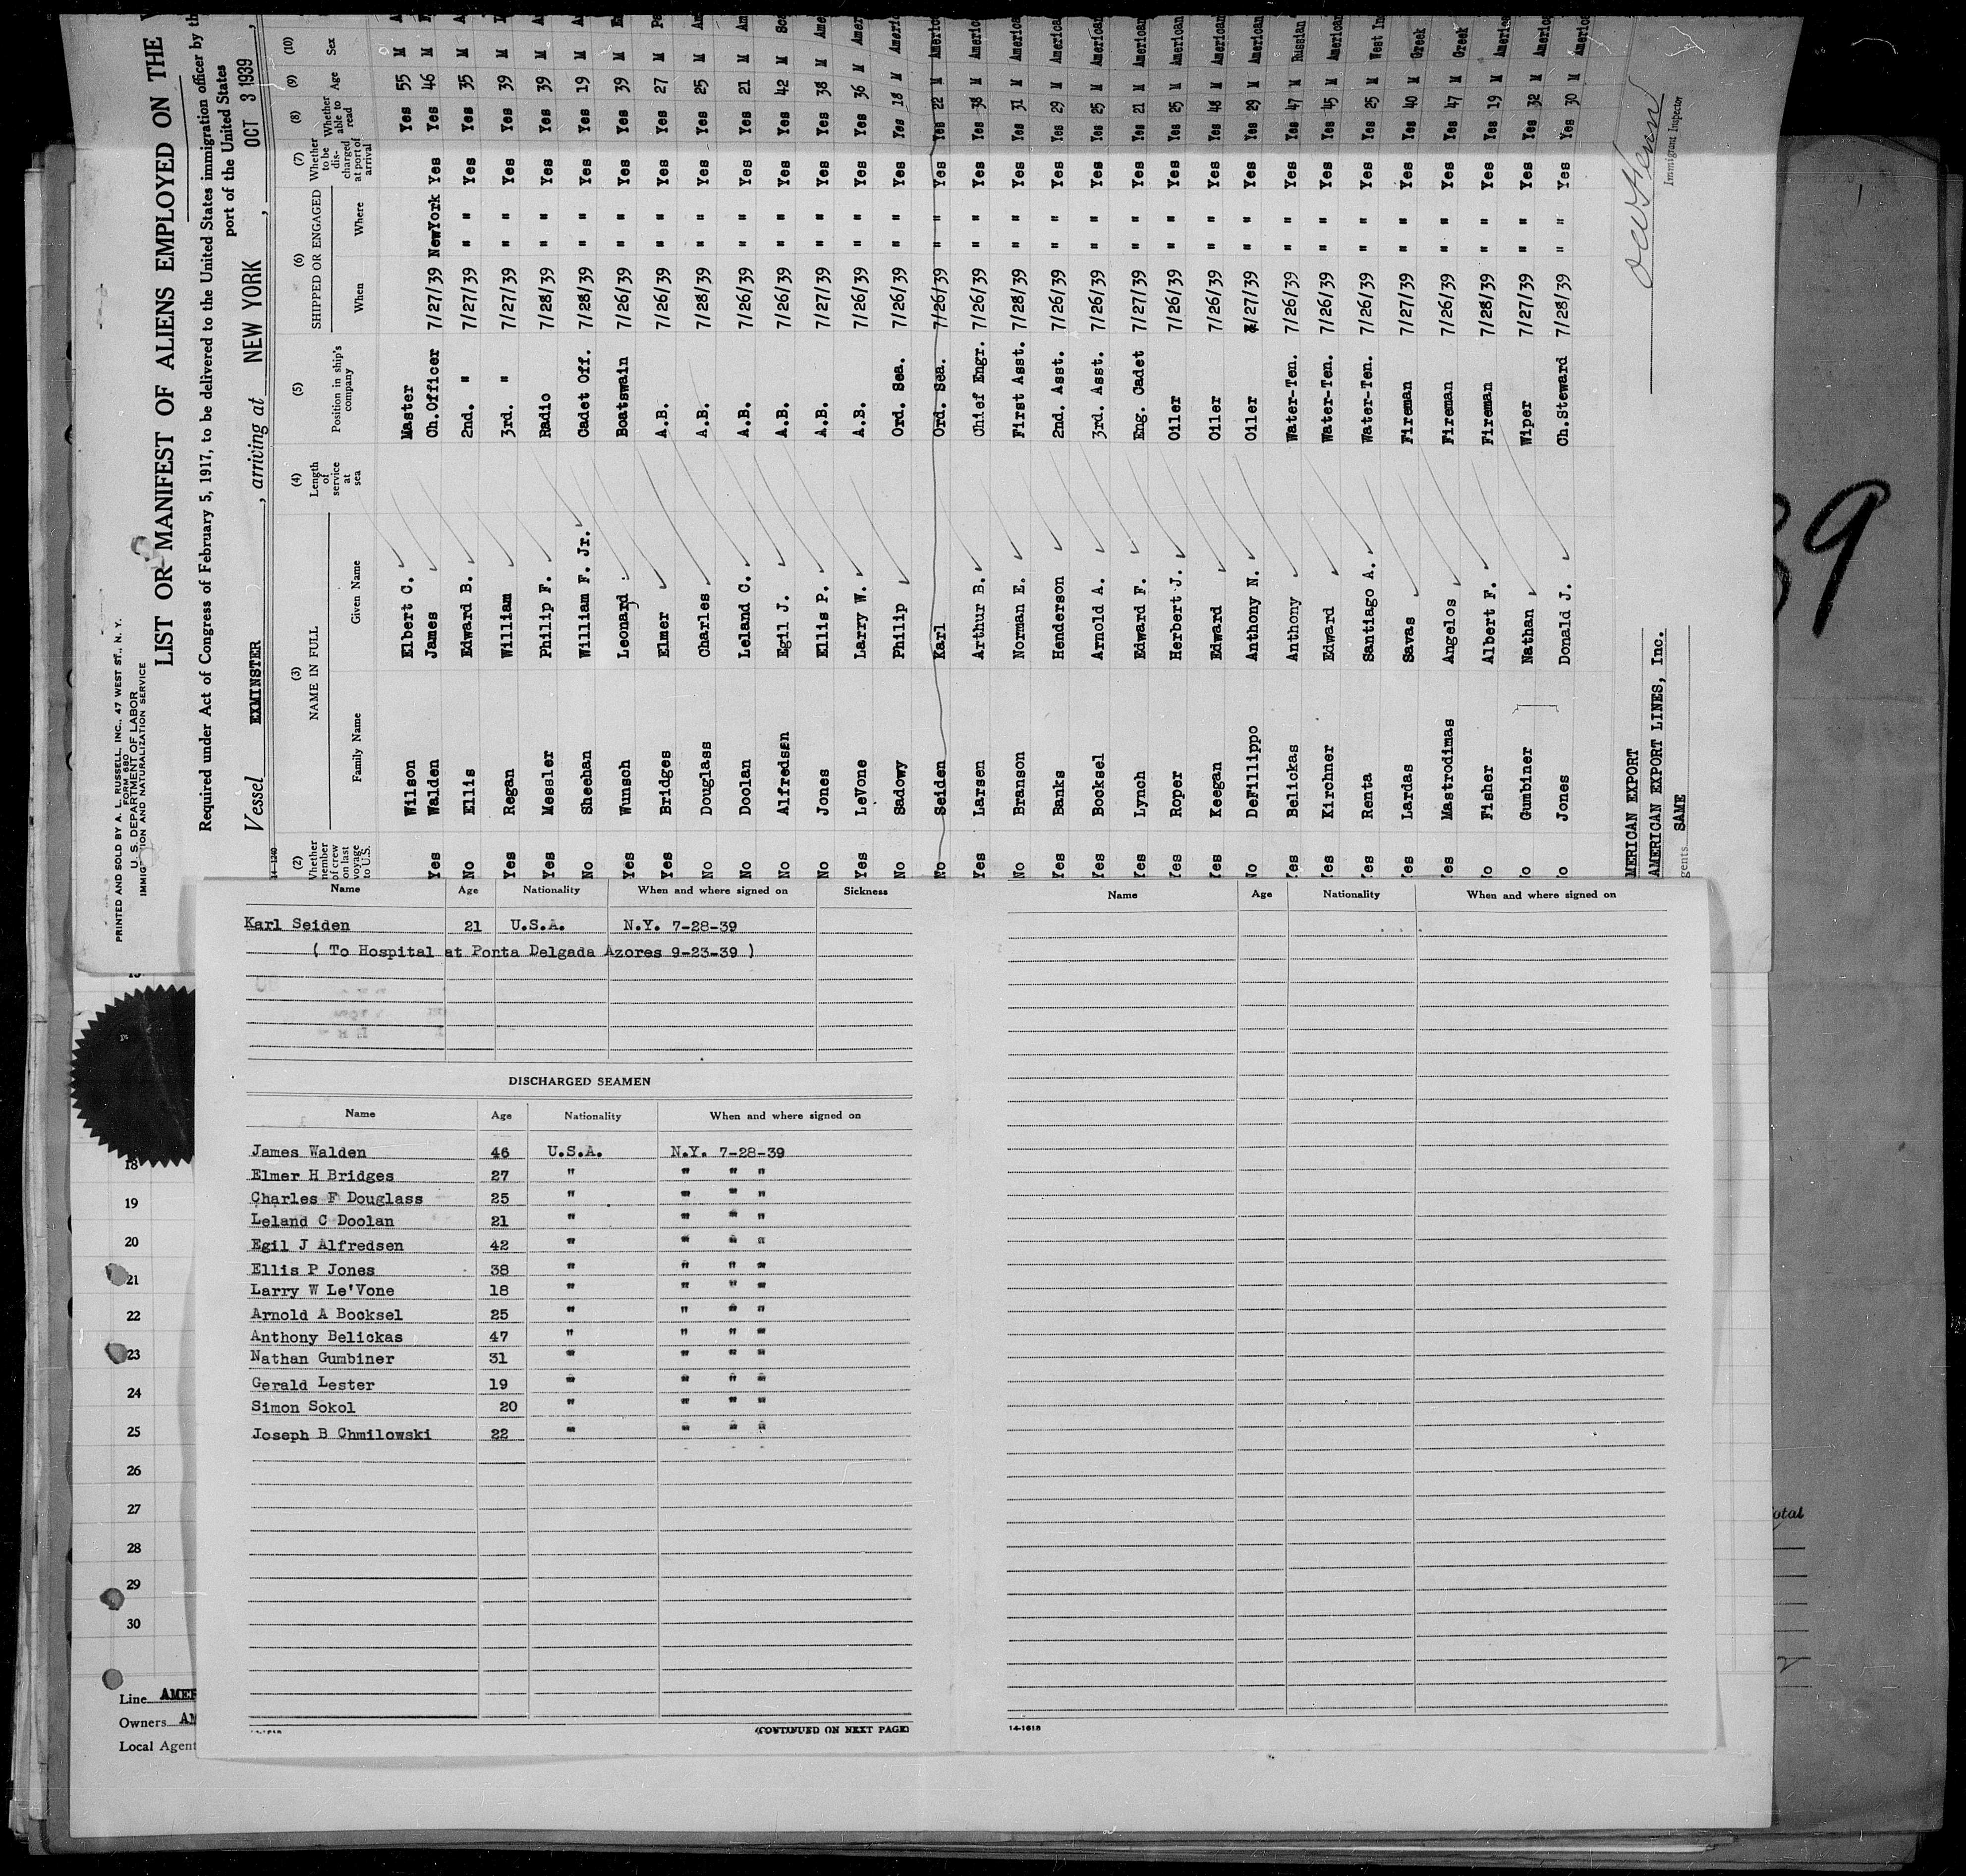 PRINTED AND SOLD BY A. L. RUSSELL, INC., 47 WEST ST., N. Y.
FORM 680
U. S. DEPARTMENT OF LABOR
IMMIGRATION AND NATURALIZATION SERVICE
LIST OR MANIFEST OF ALIENS EMPLOYED ON THE
Required under Act of Congress of February 5, 1917, to be delivered to the United States immigration officer by th
port of the United States
Vessel EXMINSTER, arriving at NEW YORK, OCT 3 1939,
14-1240
(2) (3) (4) (5) (6) (7) (8) (9) (10)
Whether member of crew on last voyage to U.S. NAME IN FULL Family Name Given Name Length of service at sea Position in ship's company SHIPPED OR ENGAGED When Where Whether to be discharged at port of arrival Whether able to read Age Sex
Wilson Elbert C. Master Yes 55 M A
Yes Walden James Ch.Officer 7/27/39 NewYork Yes Yes 46 M
No Ellis Edward B. 2nd. " 7/27/39 " " Yes Yes 35 M A
Yes Regan William 3rd. " 7/27/39 " " Yes Yes 39 M
Yes Messler Philip F. Radio 7/28/39 " " Yes Yes 39 M A
No Sheehan William F. Jr. Cadet Off. 7/28/39 " " Yes Yes 19 M A
Yes Wunsch Leonard Boatswain 7/26/39 " " Yes Yes 39 M
Yes Bridges Elmer A.B. 7/26/39 " " Yes Yes 27 M
No Douglass Charles A.B. 7/28/39 " " Yes Yes 25 M Am
No Doolan Leland C. A.B. 7/26/39 " " Yes Yes 21 M Am
No Alfredsen Egil J. A.B. 7/26/39 " " Yes Yes 42 M Sca
No Jones Ellis P. A.B. 7/27/39 " " Yes Yes 38 M Ame
Yes LeVone Larry W. A.B. 7/26/39 " " Yes Yes 36 M Amer
No Sadowy Philip Ord. Sea. 7/26/39 " " Yes Yes 18 M Ameri
No Seiden Karl Ord. Sea. 7/26/39 " " Yes Yes 22 M Americ
Yes Larsen Arthur B. Chief Engr. 7/26/39 " " Yes Yes 38 M Americ
No Branson Norman E. First Asst. 7/28/39 " " Yes Yes 31 M America
Yes Banks Henderson 2nd. Asst. 7/26/39 " " Yes Yes 29 M American
Yes Bocksel Arnold A. 3rd. Asst. 7/26/39 " " Yes Yes 25 M American
Yes Lynch Edward F. Eng. Cadet 7/27/39 " " Yes Yes 21 M American
Yes Roper Herbert J. Oiler 7/26/39 " " Yes Yes 25 M American
Yes Keegan Edward Oiler 7/26/39 " " Yes Yes 48 M American
No DeFillippo Anthony N. Oiler 7/27/39 " " Yes Yes 29 M American
Yes Belickas Anthony Water-Ten. 7/26/39 " " Yes Yes 47 M Russian
Yes Kirchner Edward Water-Ten. 7/26/39 " " Yes Yes 45 M American
Yes Renta Santiago A. Water-Ten. 7/26/39 " " Yes Yes 25 M West In
Yes Lardas Savas Fireman 7/27/39 " " Yes Yes 40 M Greek
Yes Mastrodimas Angelos Fireman 7/26/39 " " Yes Yes 47 M Greek
No Fisher Albert F. Fireman 7/28/39 " " Yes Yes 19 M Americ
No Gumbiner Nathan Wiper 7/27/39 " " Yes Yes 32 M America
No Jones Donald J. Ch.Steward 7/28/39 " " Yes Yes 30 M America
MERICAN EXPORT
AMERICAN EXPORT LINES, Inc.
gents SAME
Immigrant Inspector
Name Age Nationality When and where signed on Sickness
Karl Seiden 21 U.S.A. N.Y. 7-28-39
( To Hospital at Ponta Delgada Azores 9-23-39 )
DISCHARGED SEAMEN
Name Age Nationality When and where signed on
James Walden 46 U.S.A. N.Y. 7-28-39
Elmer H Bridges 27 " " " "
Charles F Douglass 25 " " " "
Leland C Doolan 21 " " " "
Egil J Alfredsen 42 " " " "
Ellis P Jones 38 " " " "
Larry W Le'Vone 18 " " " "
Arnold A Bocksel 25 " " " "
Anthony Belickas 47 " " " "
Nathan Gumbiner 31 " " " "
Gerald Lester 19 " " " "
Simon Sokol 20 " " " "
Joseph B Chmilowski 22 " " " "
(CONTINUED ON NEXT PAGE)
Name Age Nationality When and where signed on
14-1618
18
19
20
21
22
23
24
25
26
27
28
29
30
Line AMER
Owners AM
Local Agent
39
otal